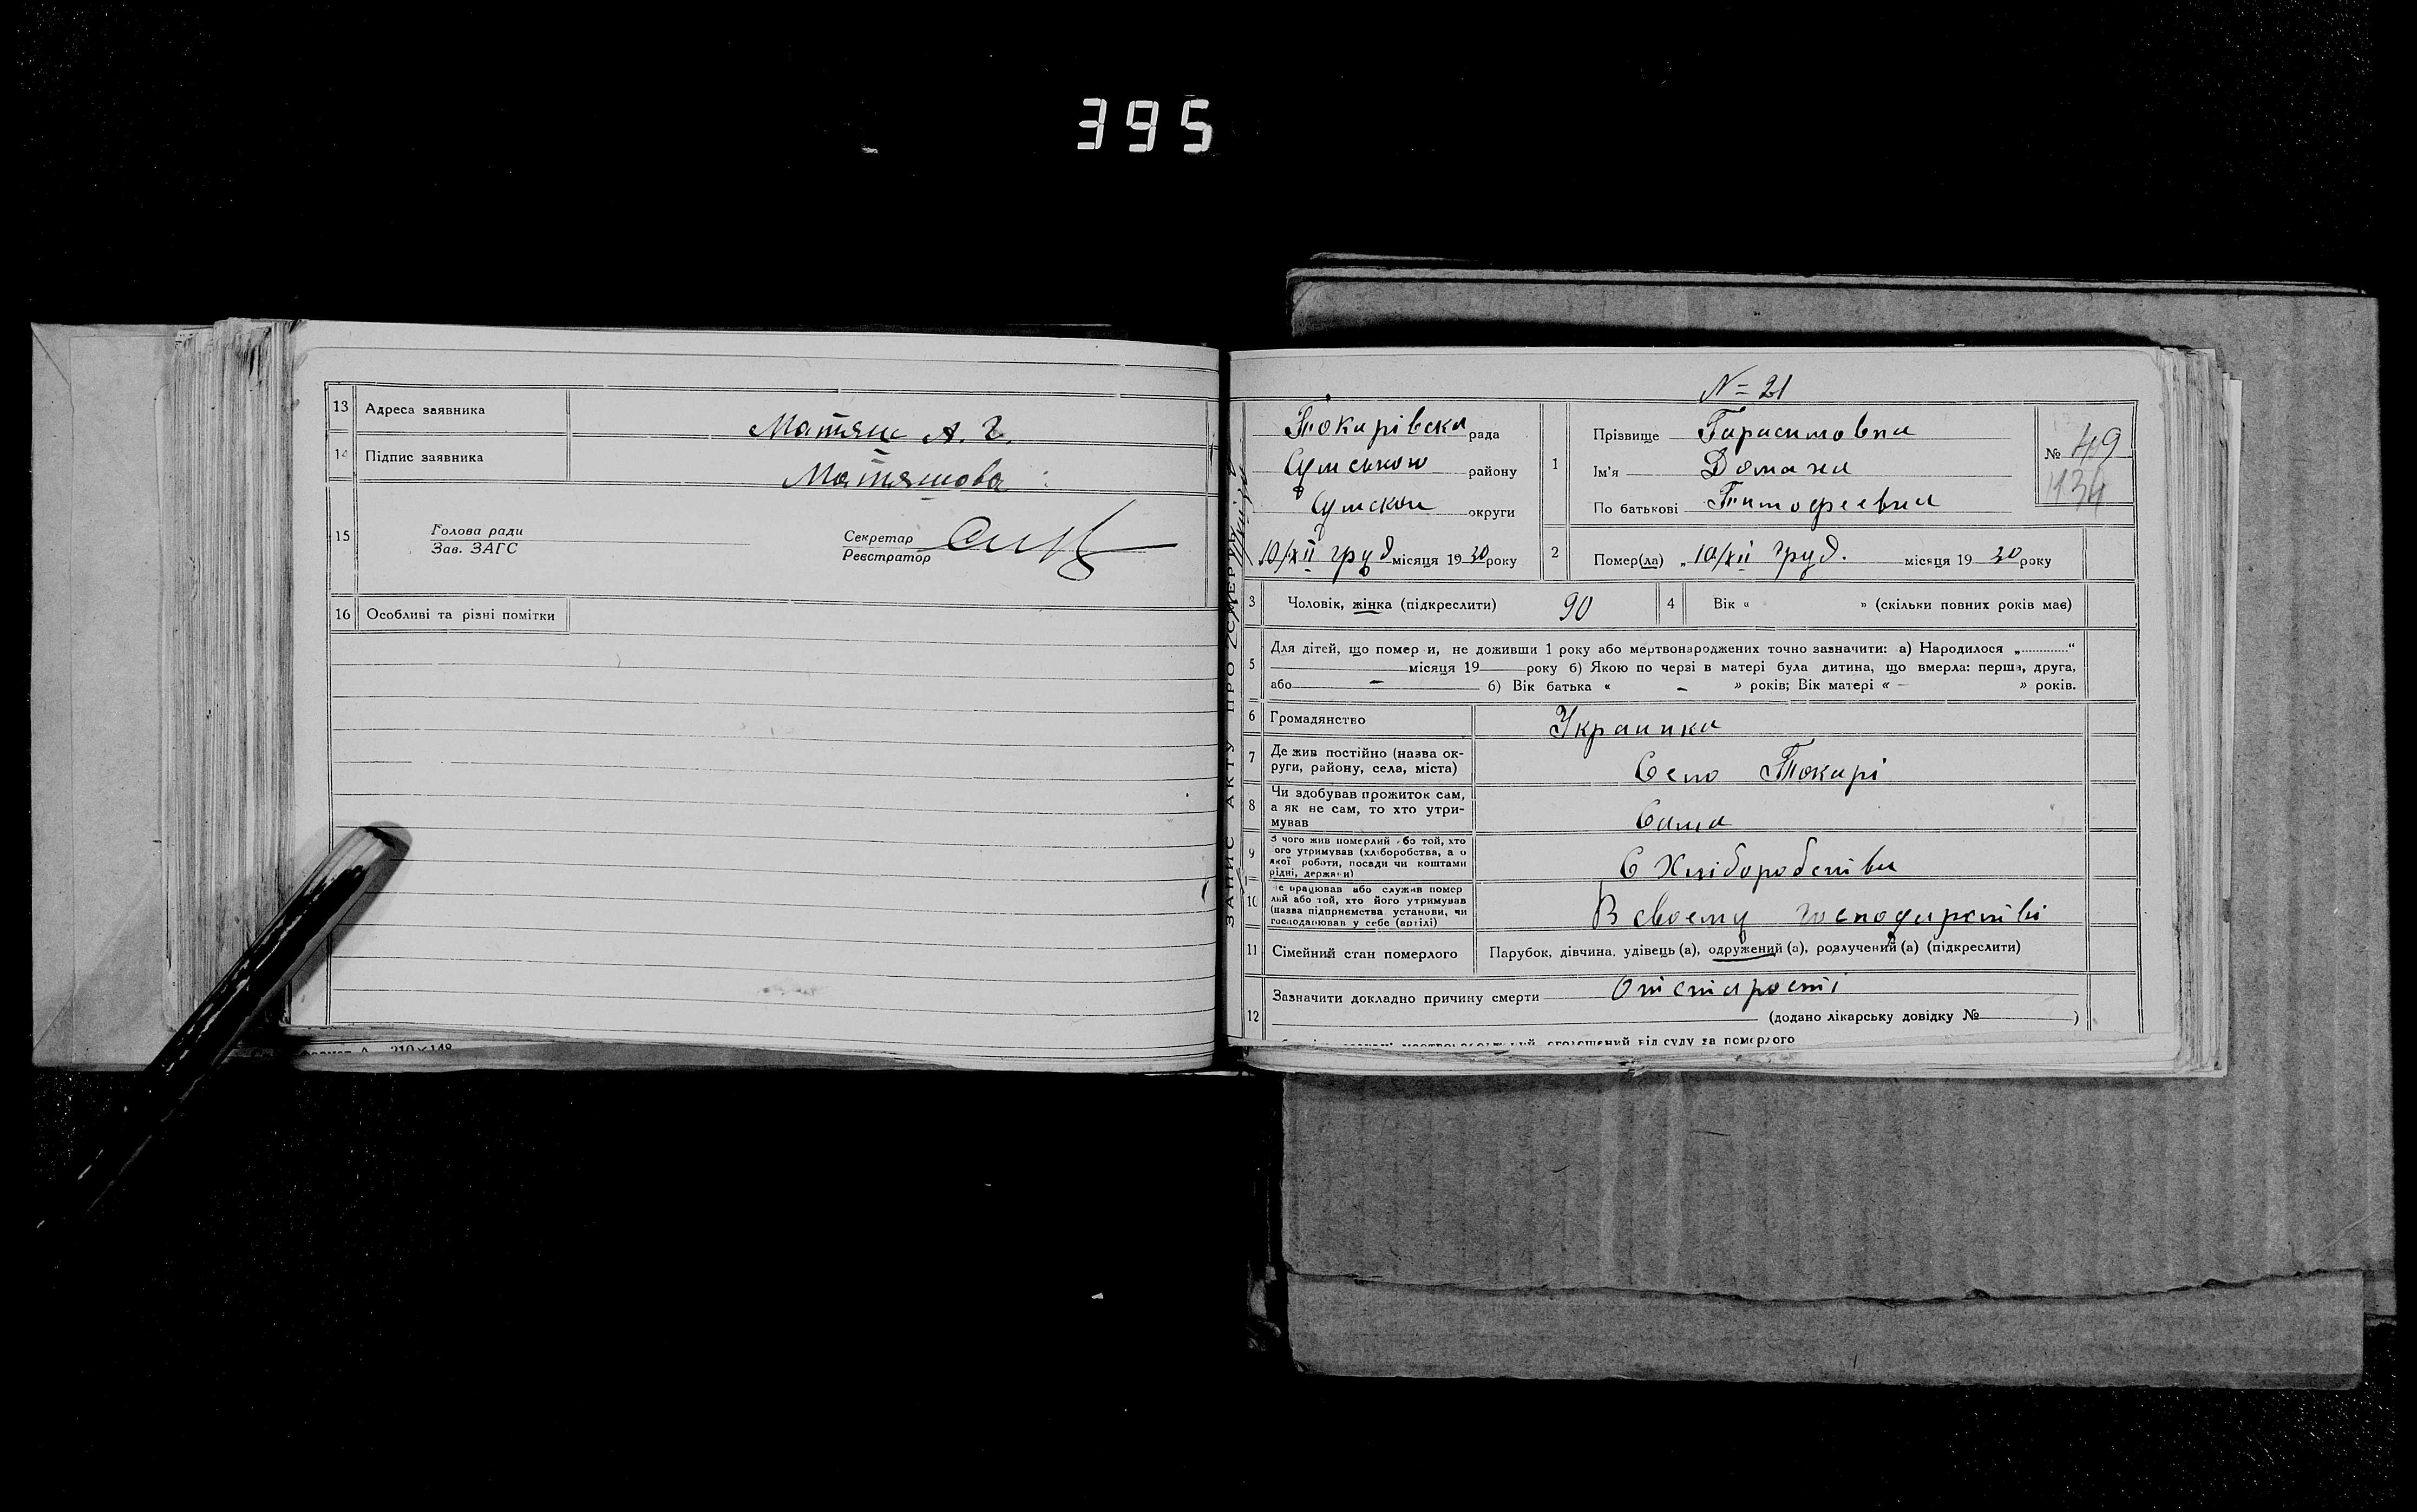 395
13 Адреса заявника Матяш А. Г.
14 Підпис заявника Матяшова
15 Голова ради
Зав. ЗАГС
Секретар
Реєстратор
16 Особливі та різні помітки
210×148
ЗАПИС АКТУ ПРО СМЕРТЬ
N= 21
Токарівска рада
Сумського району
Сумскои округи
10/XII груд місяця 1930 року
1 Прізвище Гарасимовна
Ім'я Домаха
По батькові Тимофеевна
№ 49
1934
2 Помер(ла) „ 10/XII груд. місяця 19 30 року
3 Чоловік, жінка (підкреслити) 90
4 Вік « » (скільки повних років має)
5 Для дітей, що помер и, не доживши 1 року або мертвонароджених точно зазначити: а) Народилося „............“
місяця 19 року б) Якою по черзі в матері була дитина, що вмерла: перша, друга,
або – б) Вік батька « – » років; Вік матері « – » років.
6 Громадянство Украинка
7 Де жив постійно (назва ок-
руги, району, села, міста) Село Токарі
8 Чи здобував прожиток сам,
а як не сам, то хто утри-
мував Сама
9 З чого жив померлий або той, хто
ого утримував (хліборобства, а о
якої роботи, посади чи коштами
рідні, держави) С Хліборобства
10 е працював або служив помер
лий або той, хто його утримував
(назва підприємства установи, чи
господарював у себе (артілі) В своему господарстві
11 Сімейний стан померлого Парубок, дівчина, удівець (а), одружений (а), розлучений (а) (підкреслити)
12 Зазначити докладно причину смерти От старости
(додано лікарську довідку № )
оголошений від суду за померлого